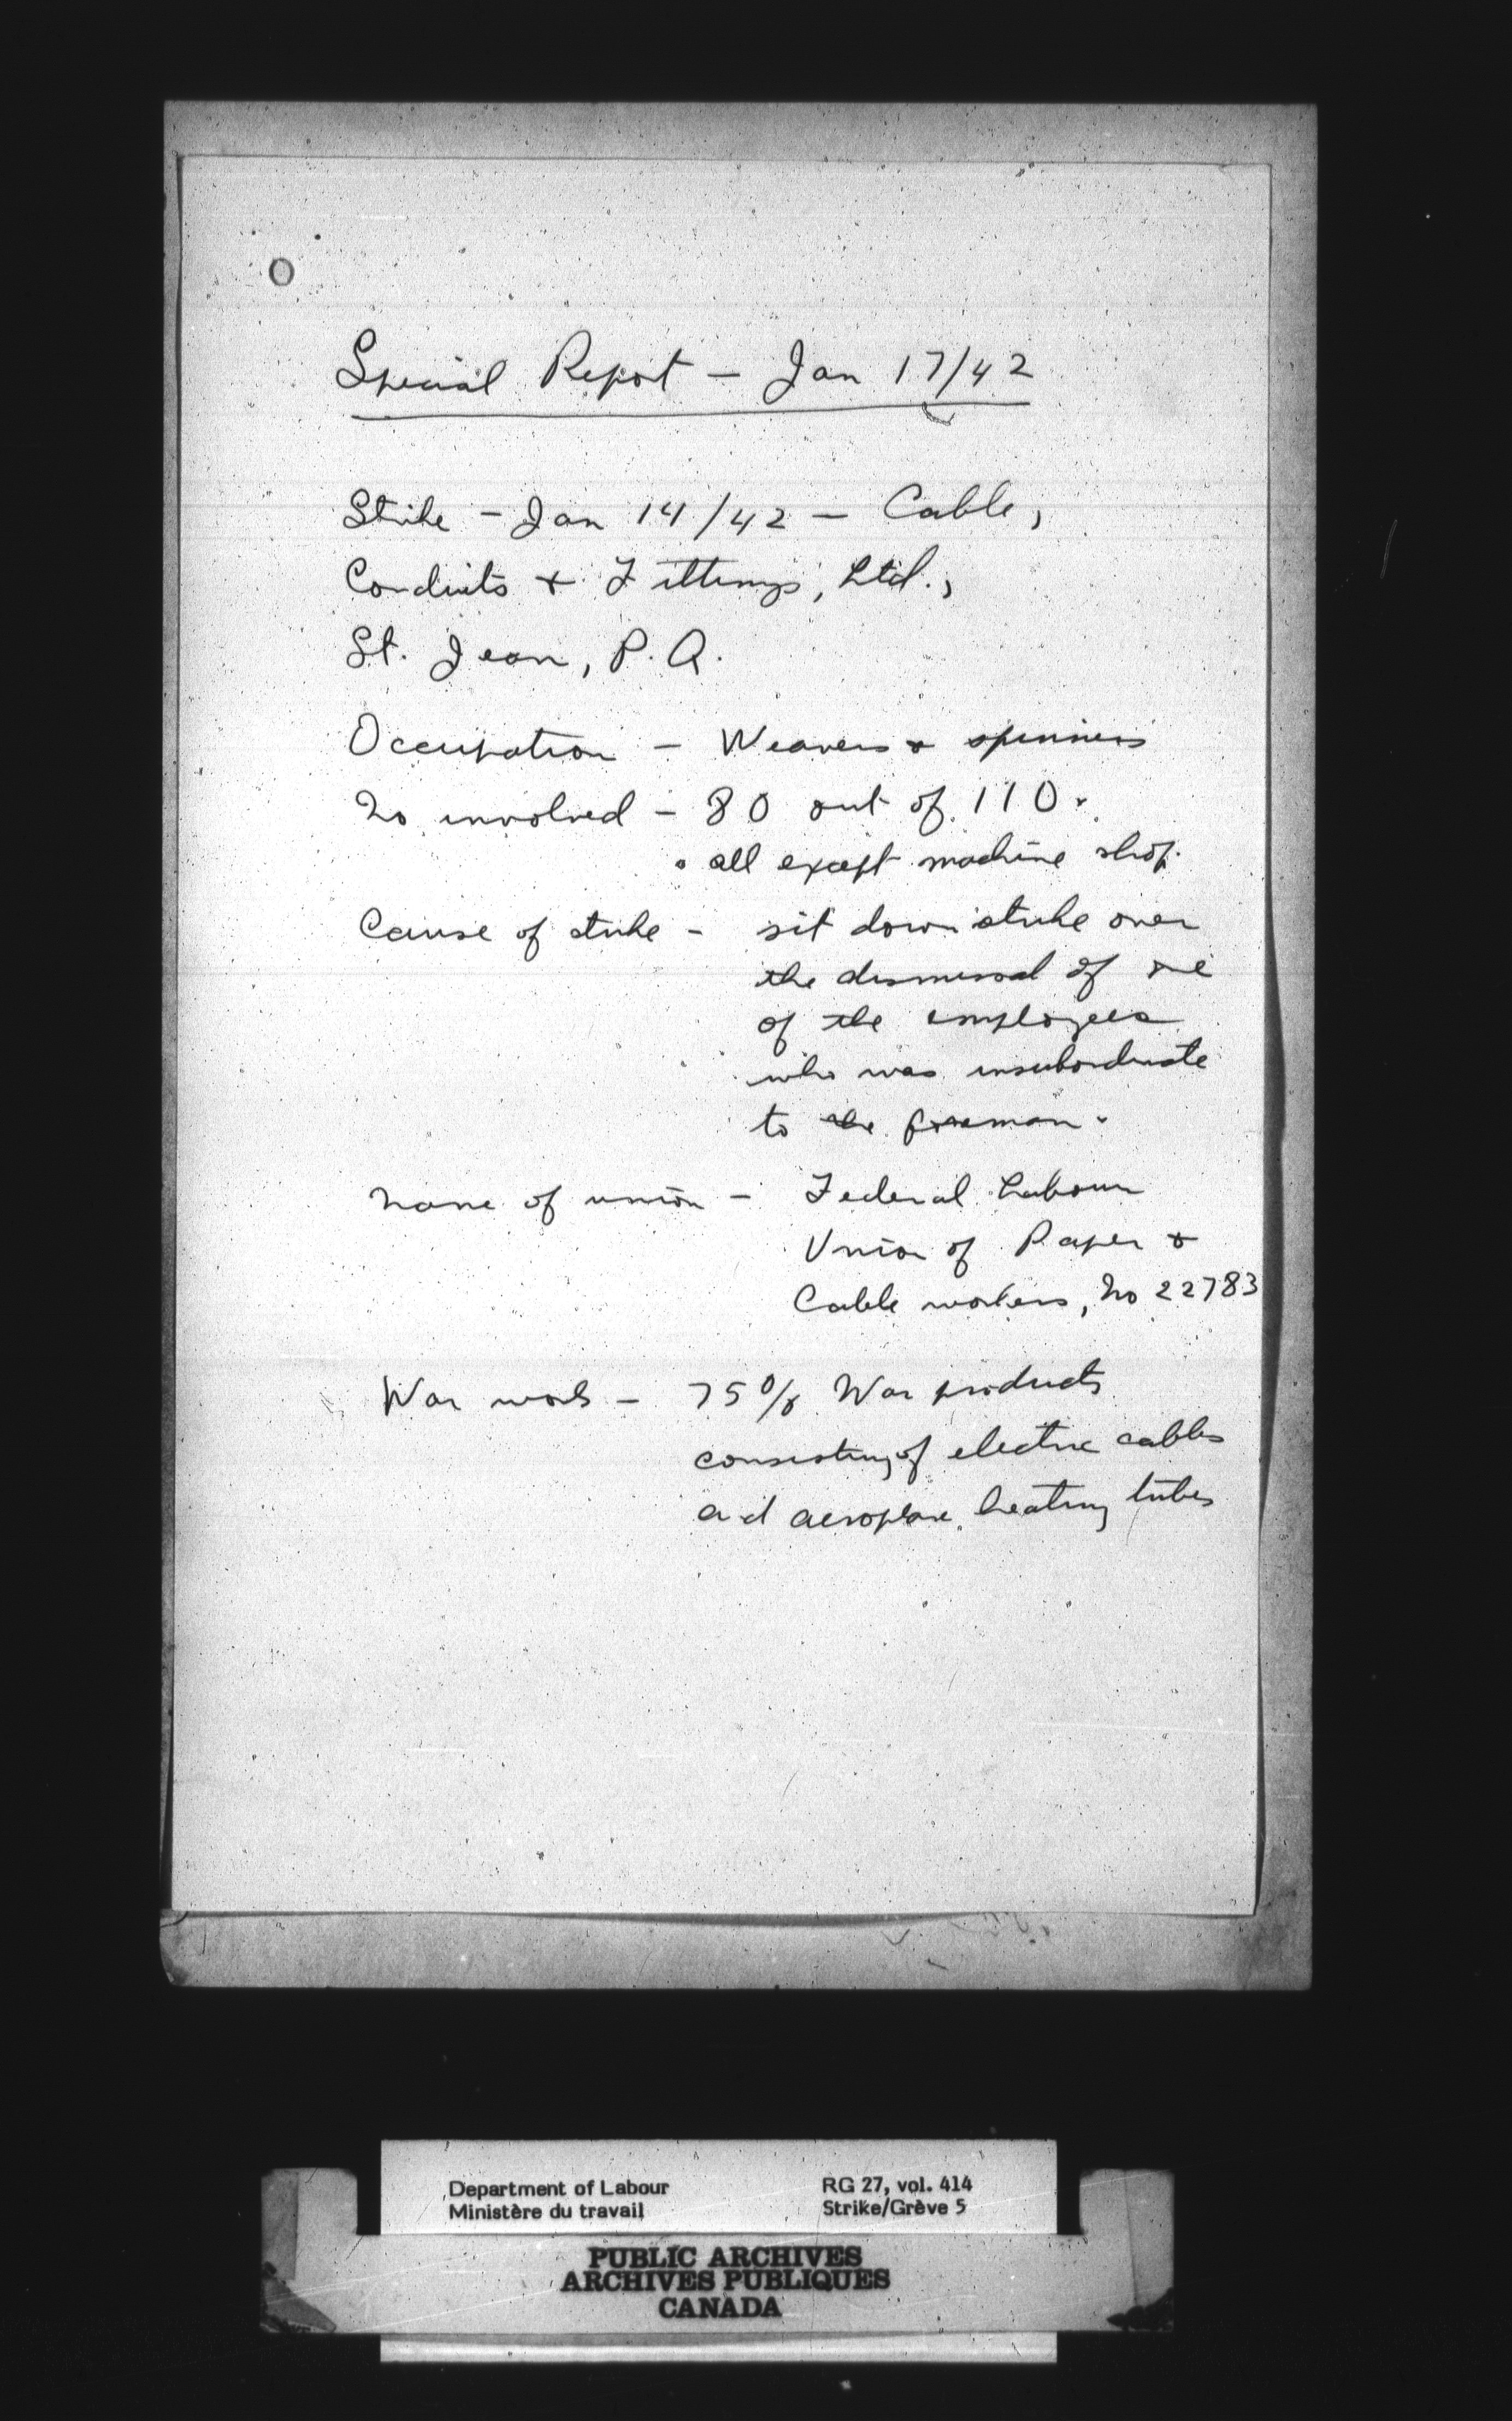 Special Report - Jan 17/42
Strike - Jan 14/42 - Cable,
Conduits & Fittings, Ltd.,
St. Jean, P.Q.
Occupation - Weavers & spinners
No involved - 80 out of 110.
all except machine shop.
Cause of strike - sit down strike over
the dismissal of one
of the employees
who was insubordinate
to the foreman.
Name of union - Federal Labour
Union of Paper &
Cable workers, No 22783
War work - 75% War products
consisting of electric cables
and aeroplane heating tubes
Department of Labour RG 27, vol. 414
Ministère du travail Strike/Grève 5
PUBLIC ARCHIVES
ARCHIVES PUBLIQUES
CANADA